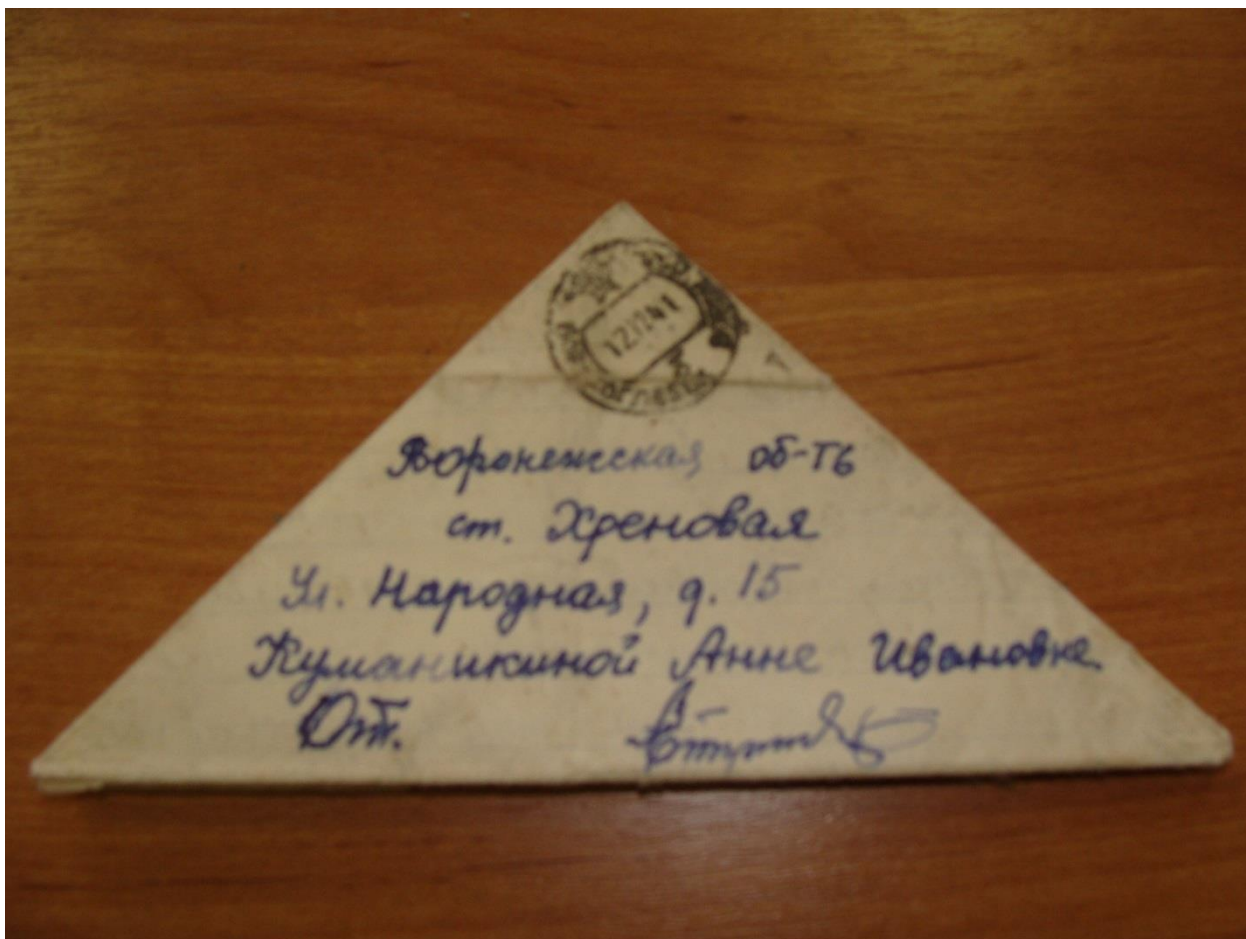 Воронежская об-ть
ст. Хреновая
Ул. Народная, д. 15
Куманикиной Анне Ивановне
От.